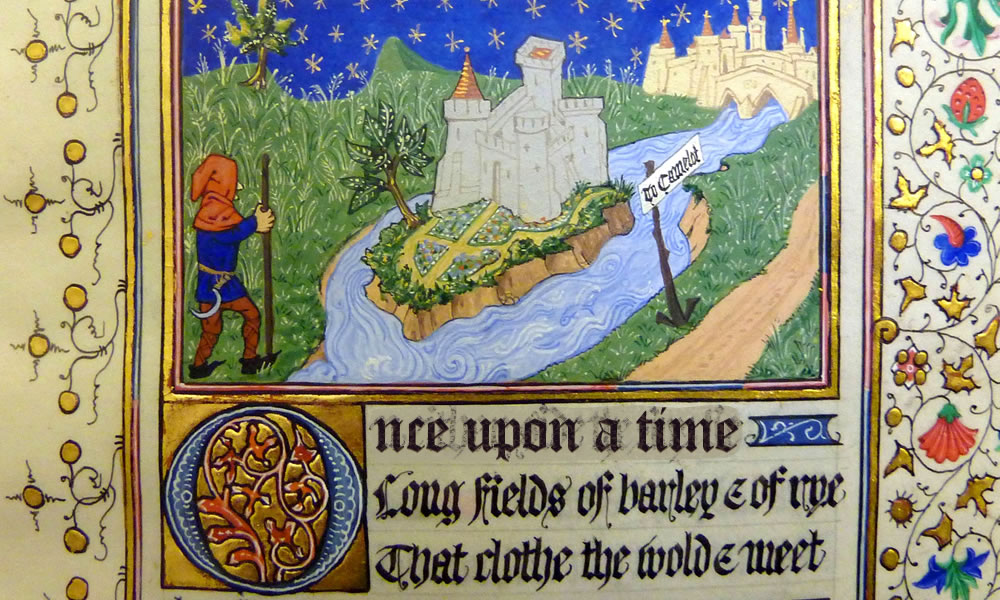 To Camelot
Once upon a time
Long fields of barley & of rye
That clothe the wold & meet